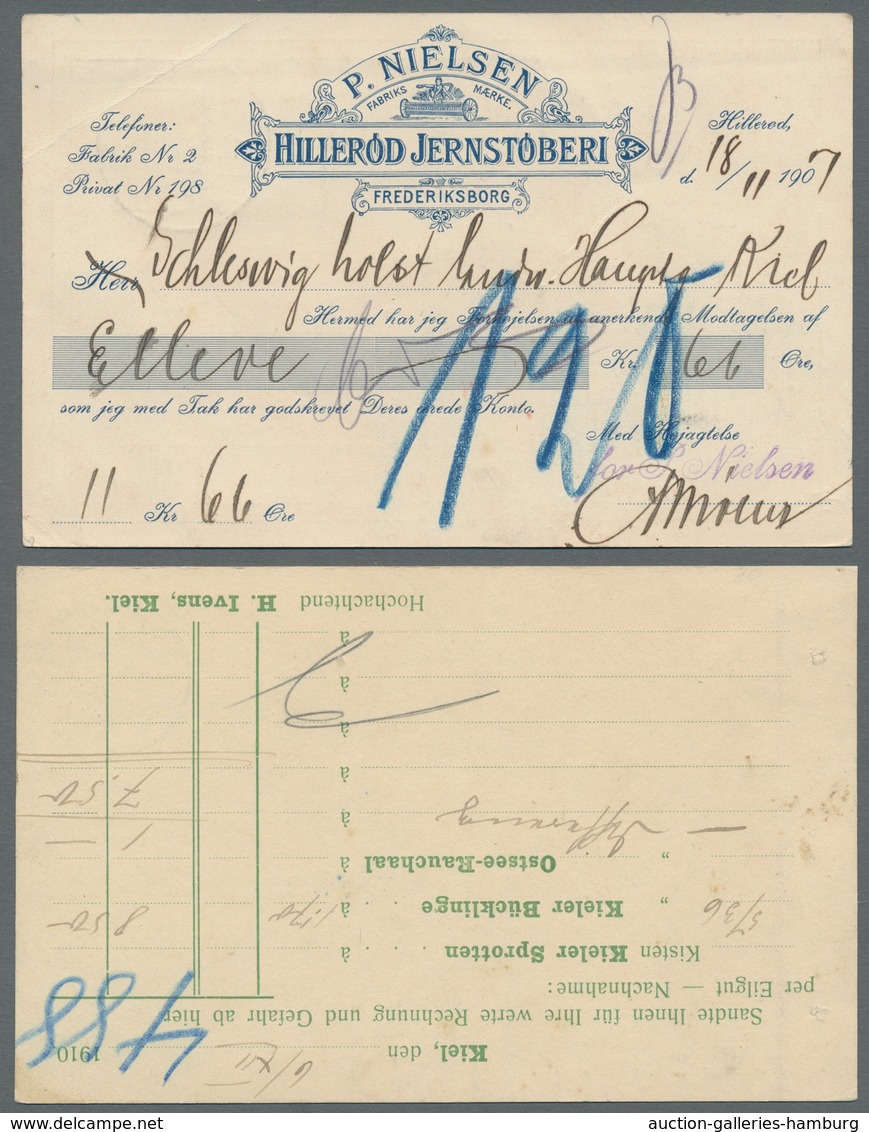 P. NIELSEN
FABRIKS MÆRKE.
HILLERØD JERNSTØBERI
FREDERIKSBORG
Telefoner:
Fabrik Nr 2
Privat Nr 198
Hillerød,
d. 18/11 1907
Herr Schleswig holst landw. Kiel
Hermed har jeg Fornøjelsen at anerkende Modtagelsen af
Elleve Kr. 66 Øre,
som jeg med Tak har godskrevet Deres ærede Konto.
Med Højagtelse
for P. Nielsen
11 Kr 66 Øre
Kiel, den 6/XII 1910
488
Sandte Ihnen für Ihre werte Rechnung und Gefahr ab hier
per Eilgut — Nachnahme:
Kisten Kieler Sprotten . . . à
5/36 „ Kieler Bücklinge . . à 1.70 8 50
„ Ostsee-Rauchaal à
— 1 —
à 7,50
à
à
à
à
Hochachtend H. Ivens, Kiel.
auction-galleries-hamburg
www.delcampe.net